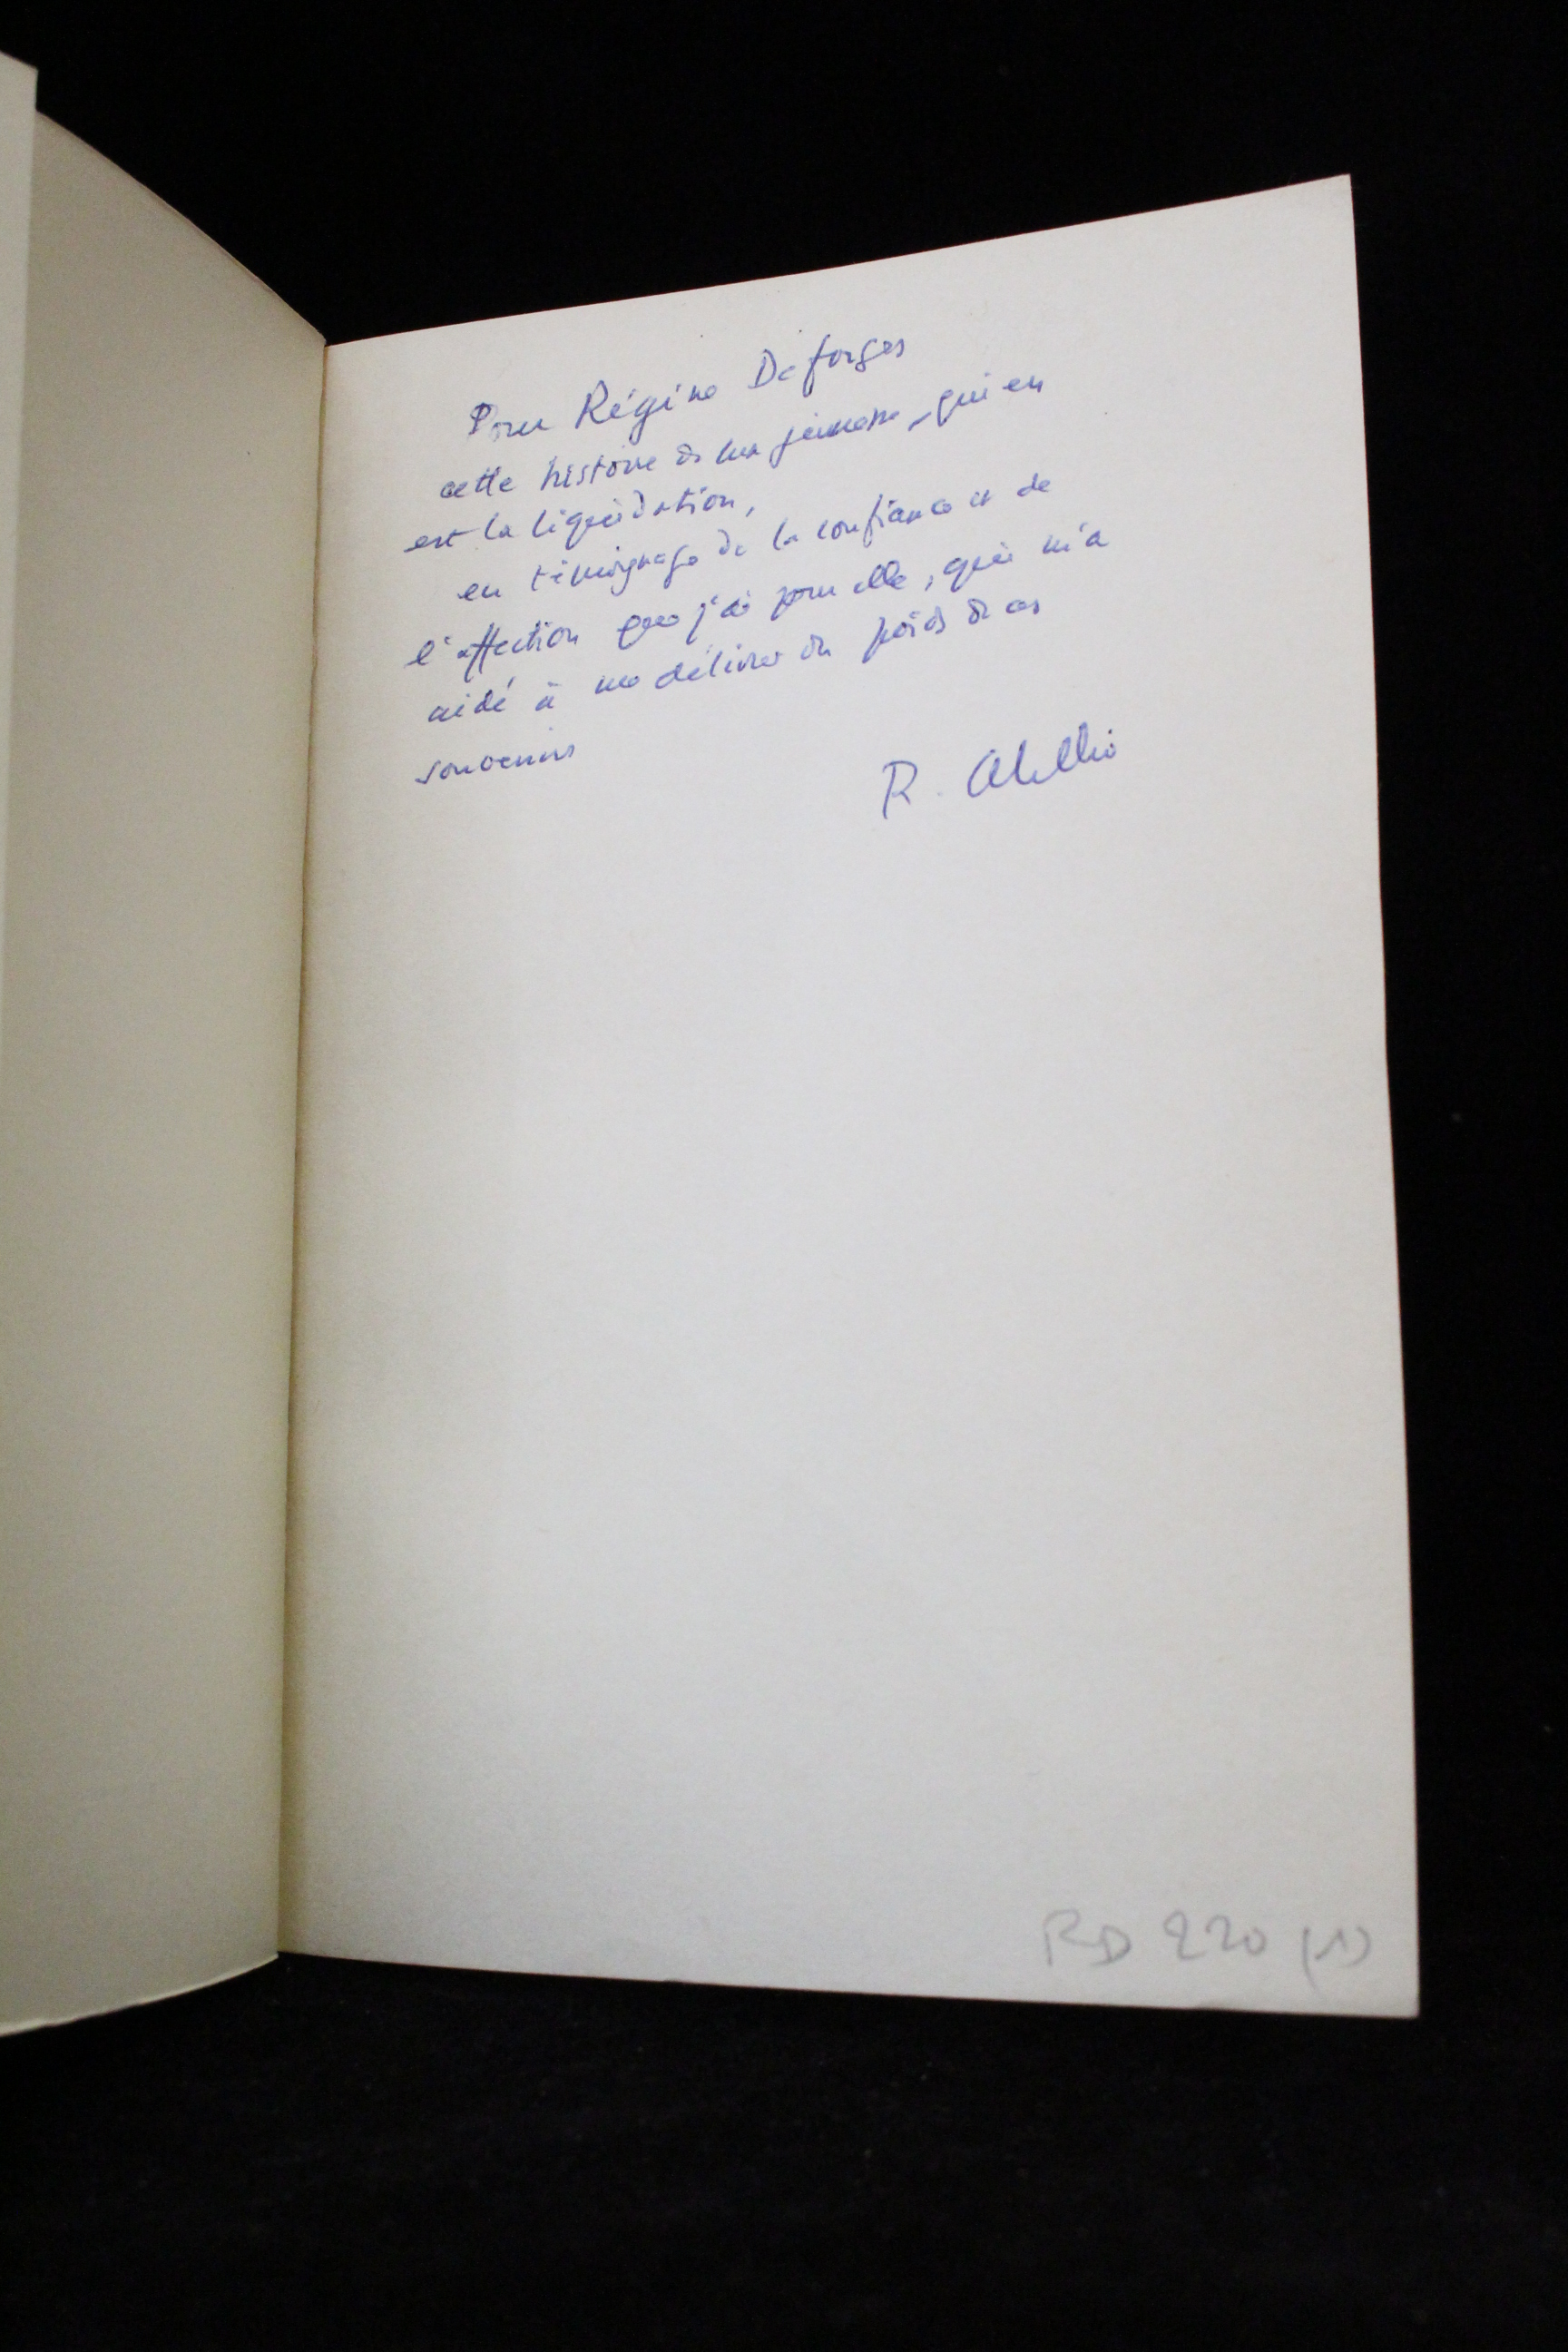 Pour Régine Deforges
cette histoire de ma jeunesse, qui en
est la liquidation,
en témoignage de la confiance et de
l'affection que j'ai pour elle, qui m'a
aidé à me délivrer du poids de ces
souvenirs
R. Abellio
RD 220 (1)